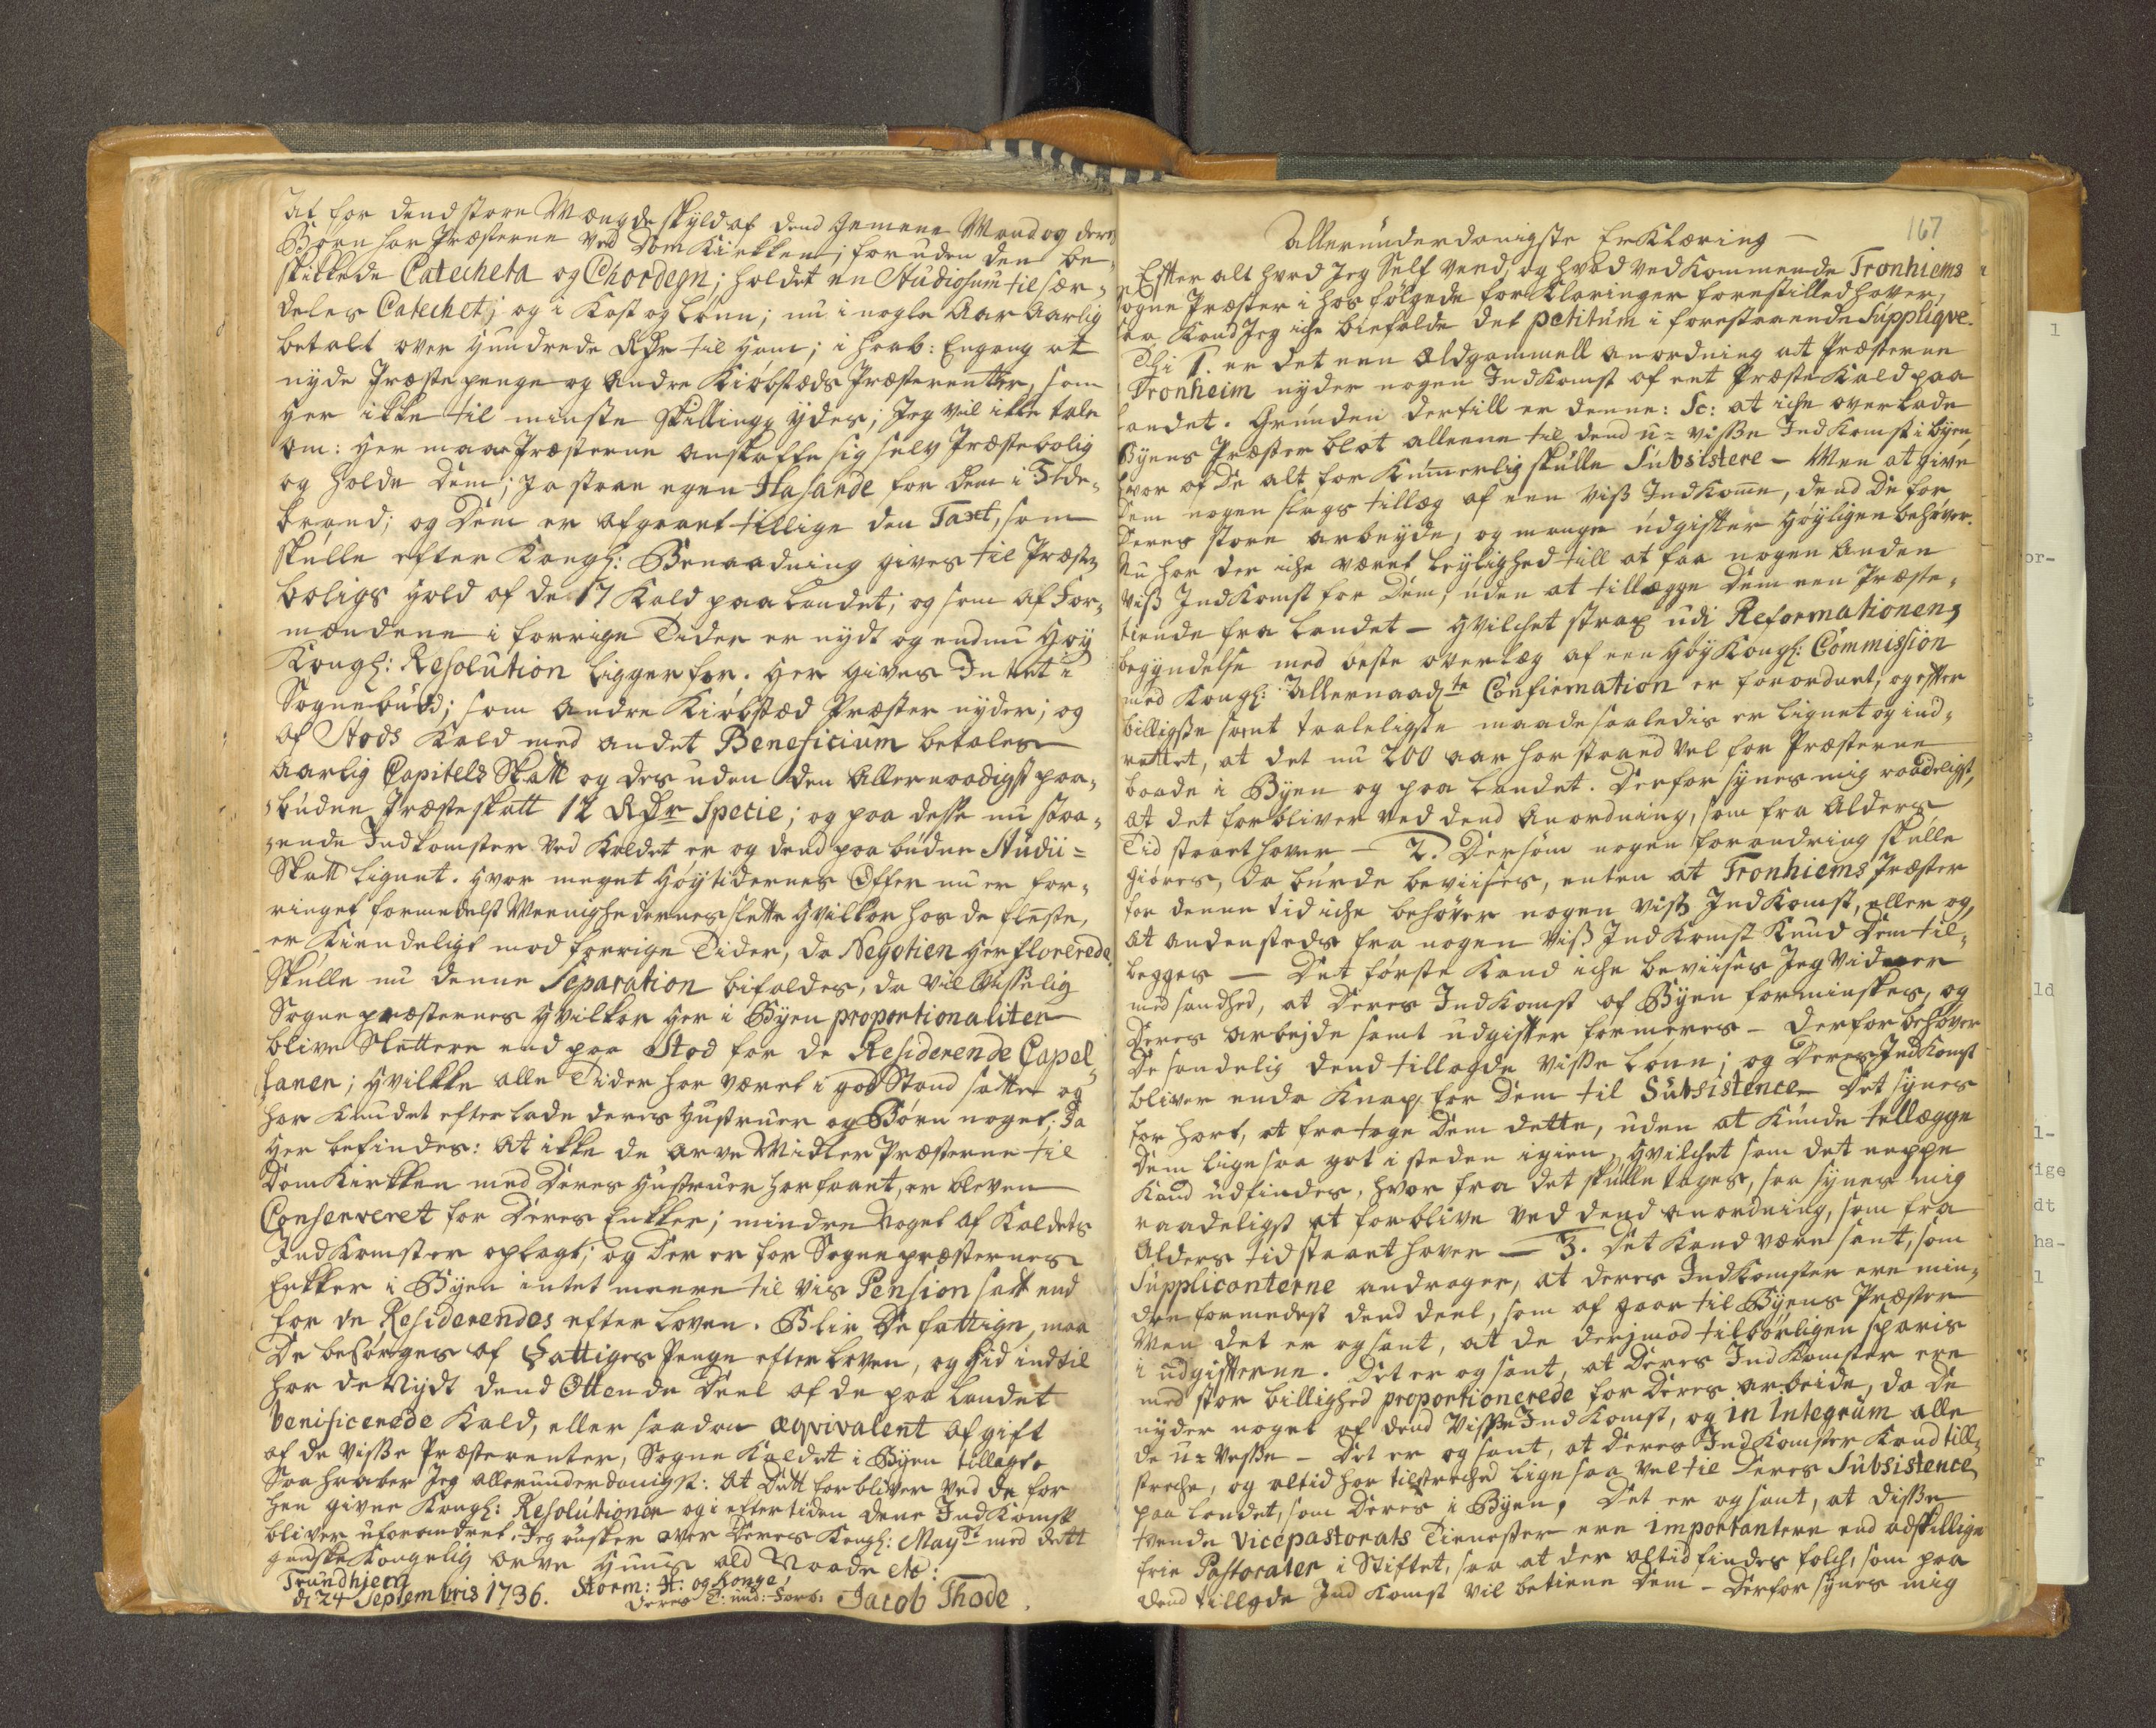 At for dend store Mængde skyld af dend Gemene Mand og deres
Børn har Præsterne ved Dom Kirkken; foruden den be-
skikkede Catecheta og Chordegn; holdet en Studiosum til sær-
deles Catechet; og i Kost og Lønn; nu i nogle Aar Aarlig
betalt over Hundrede Rdr til Ham; i Haab: Engang at
nyde Præstepenge og andre Kiøbstæds Præsterentter, som
Her ikke til minste Skilling ydes; Jeg vil ikke tale
om: Her maae Præsterne anskaffe sig selv Præstebolig
og holde dem; Ja staae egen Hasarde for dem i Ilde-
brand; og dem er afgaaet tillige den Taxt, som
skulle efter Kongl: Benaadning gives til Præste
boligs hold af de 17 Kald paa Landet; og som af For-
mændene i forrige Tider er nydt og endnu Høy
Kongl: Resolution ligger for. Her gives Intet i
Sognebud; som andre Kiøbstæd Præster nyder; og
af Stods Kald med andet Beneficium betales
Aarlig Capitels Skatt og desuden den Allernaadigst paa-
budne Præsteskatt 12 Rdr Specie; og paa desse nu staa-
ende Indkomster ved Kaldet er og dend paabudne Studii=
Skatt lignet. Hvor meget Høytidernes Offer nu er for-
ringet formedelst Meenighedernes slette Hvilkor hos de fleste,
er Kiendeligt mod forrige Tider, da Negotien her florerede.
Skulle nu denne Separation bifaldes, da vil visselig
Sognepræsternes Hvilkor her i Byen proportionaliter
blive Slettere end paa Stod for de Residerende Capel-
laner; Hvilkke alle Tider har været i god Stand satte og
har kundet efterlade deres Hustruer og Børn noget; Da
Her befindes: At ikke de arve Midler Præsterne til
DomKirkken med Deres Hustruer har faaet, er bleven
Conserveret for Deres Enkker; mindre Noget af Kaldets
IndKomster oplagt; og Der er for Sognepræsternes
Enkker i Byen intet meere til vis Pension satt end
for de Residerendes efter Loven. Blir De fattige, maa
De besørges af Fattiges Penge efter Loven, og hid indtil
har de Nydt dend Ottende Deel af de paa Landet
benificerede Kald, eller saadan æqvivalent Afgift
af de visse Præsterenter, Sogne Kaldet i Byen tillagt.
Saa haaber Jeg allerunderdanigst: At Dett forbliver ved de for
hen givne Kongl: Resolutioner og i eftertiden dene IndKomst
bliver uforandret. Jeg ønsker over Deres Kongl: Mayst: med dett
gandske Kongelig Arve Huus ald Naade etc:
Trundhjem
d: 24 Septembris 1736. Storm: H: og Konge,
Deres T: und: Forb: Jacob Thode.
167
Allerunderdanigste ErKlæring
Efter alt hvad Jeg Self veed, og hvad vedKommende Tronhiems
Sogne Præster i hos følgende forKlaringer forestilled haver,
saa Kand Jeg iche biefalde det petitum i forestaaende Suppliqve.
Thi 1. er det een Ældgammell anordning at Præsterne
Tronheim nyder nogen IndKomst af eet Præste Kald paa
Landet. Grunden dertill er denne: Sc: at iche overlade
Byens Præster blot alleene til dend u=visse IndKomst i byen,
hvor af De alt for Kummerlig skulle Subsistere – Men at give
Dem nogen slags tillæg af een viß IndKomme, dend De for
Deres store arbeyde, og mange udgifter høyligen behøver.
Nu har der iche været leylighed till at faa nogen anden
viß IndKomst for Dem, uden at tillægge dem een Præste-
tiende fra Landet – hvilchet strax udi Reformationens
begyndelse med beste overlæg af een Høy Kongl: Commission
med Kongl: Allernaadste Confirmation er forordnet, og efter
billigste samt taaleligste maade saaledis er lignet og ind-
rettet, at det nu 200 aar har staaed vel for Præsterne
baade i Byen og paa Landet. Derfor synes mig raadeligst,
at det forbliver ved dend Anordning, som fra Alders
Tid staaet haver – 2. Dersom nogen forandring skulle
giøres, da burde beviises, enten at Tronhiems Præster
for denne tid iche behøver nogen viß IndKomst, eller og,
at andensteds fra nogen viß IndKomst Kund Dem til-
legges – Det første Kand iche beviises Jeg vidner
med sandhed, at Deres IndKomst af Byen forminskes, og
Deres arbejde samt udgifter formeres – Derfor behøver
De sandelig dend tillagde visse Lønn; og Deres IndKomst
bliver enda Knap for Dem til Subsistence – Det synes
for hart, at fratage Dem dette, uden at Kunde tillægge
Dem lige saa got i steden igien, hvilchet som det neppe
Kand udfindes, hvor fra det skulle tages, saa synes mig
raadeligst at forblive ved dend anordning, som fra
Alders tid staaet haver – 3. Det Kand være sant, som
Suppliconterne andrager, at deres IndKomster ere min-
dre formedelst dend deel, som af gaar til Byens Præster
Men det er og sant, at de derjmod tilbørligen sparis
i udgifterne. Det er og sant, at Deres IndKomster ere
med stor billighed proportionerede for Deres arbeide, da De
nyder noget af dend Visse IndKomst, og in Integrum alle
de u=Visse – Det er og sant, at Deres IndKomster Kand till-
streche, og altid har tilstreched lige saa vel til Deres Subsistence
paa Landet, som Deres i Byen. Det er og sant, at disse
tvende Vicepastorats Tienester ere importantere end adskillige
frie Pastorater i Stiftet, saa at der altid findes folch, som paa
dend tillagde IndKomst vil betiene Dem – Derfor synes mig